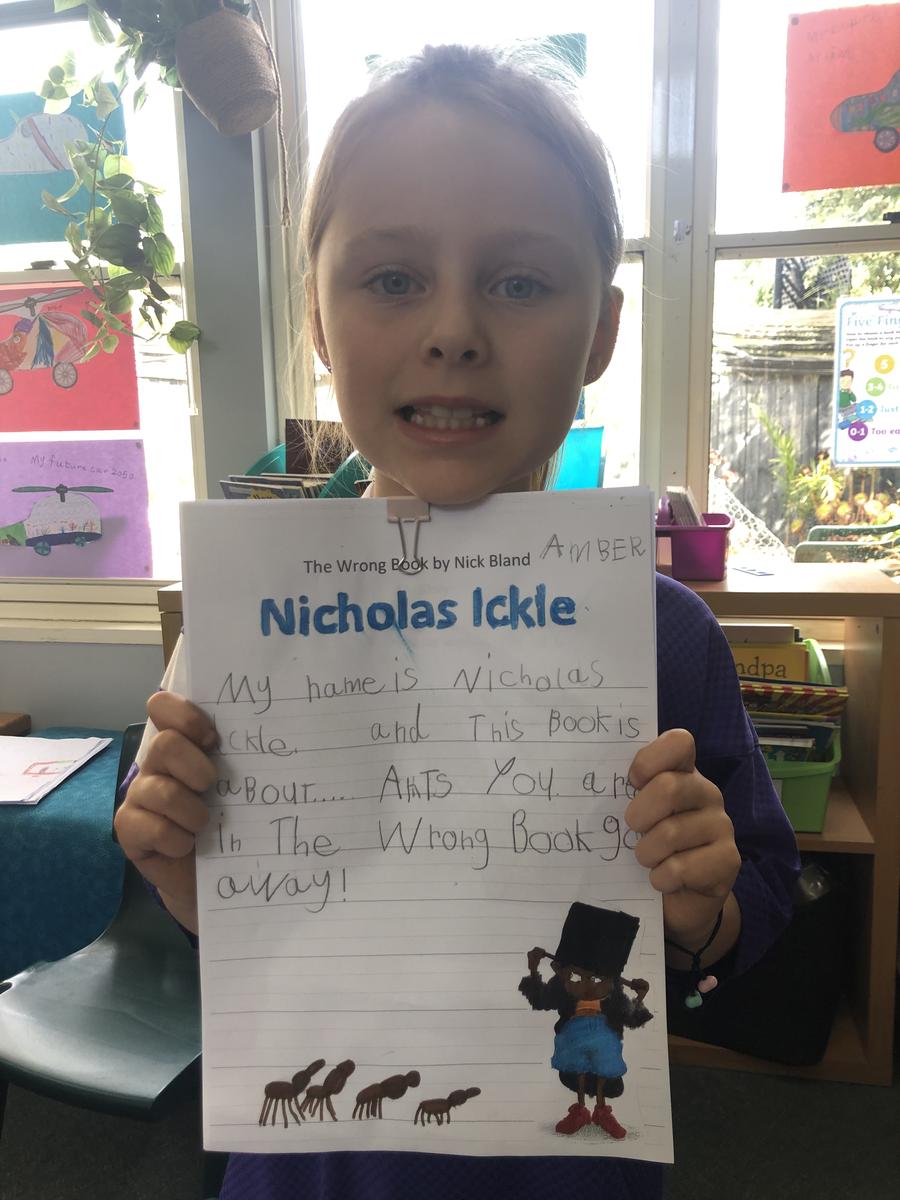 My future car 2050
Five Fing
5
3-4
1-2 Just
0-1 Too ea
ndpa
The Wrong Book by Nick Bland
AMBER
Nicholas Ickle
My name is Nicholas
Ickle. and This Book is
aBout.... AnTs You are
in The Wrong Book go
away!